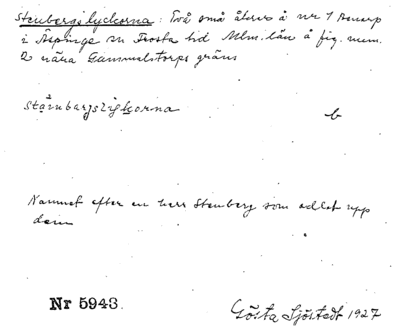 Stenbergslyckorna: Två små åkrar å nr 1 Asmarp
i Äspinge sn Frosta hd Mlm. län å fig. num.
2 nära Gammalstorps gräns
b
Namnet efter en herr Stenberg som odlat upp
dem
Nr 5943.
Gösta Sjöstedt 1927